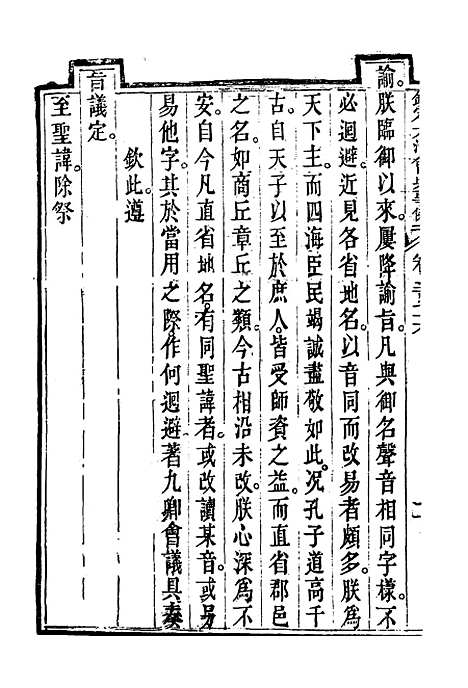 諭。朕臨御以來。屢降諭旨。凡與御名聲音相同字樣。不
必迴避。近見各省地名。以音同而改易者頗多。朕為
天下主。而四海臣民竭誠盡敬如此。况孔子道高千
古。自天子以至於庶人。皆受師資之益。而直省郡邑
之名。如商丘章丘之類。今古相沿未改。朕心深為不
安。自今凡直省地名。有同聖諱者。或改讀某音。或另
易他字。其於當用之際。作何迴避。著九卿會議具奏
欽此遵
旨議定。
至聖諱除祭